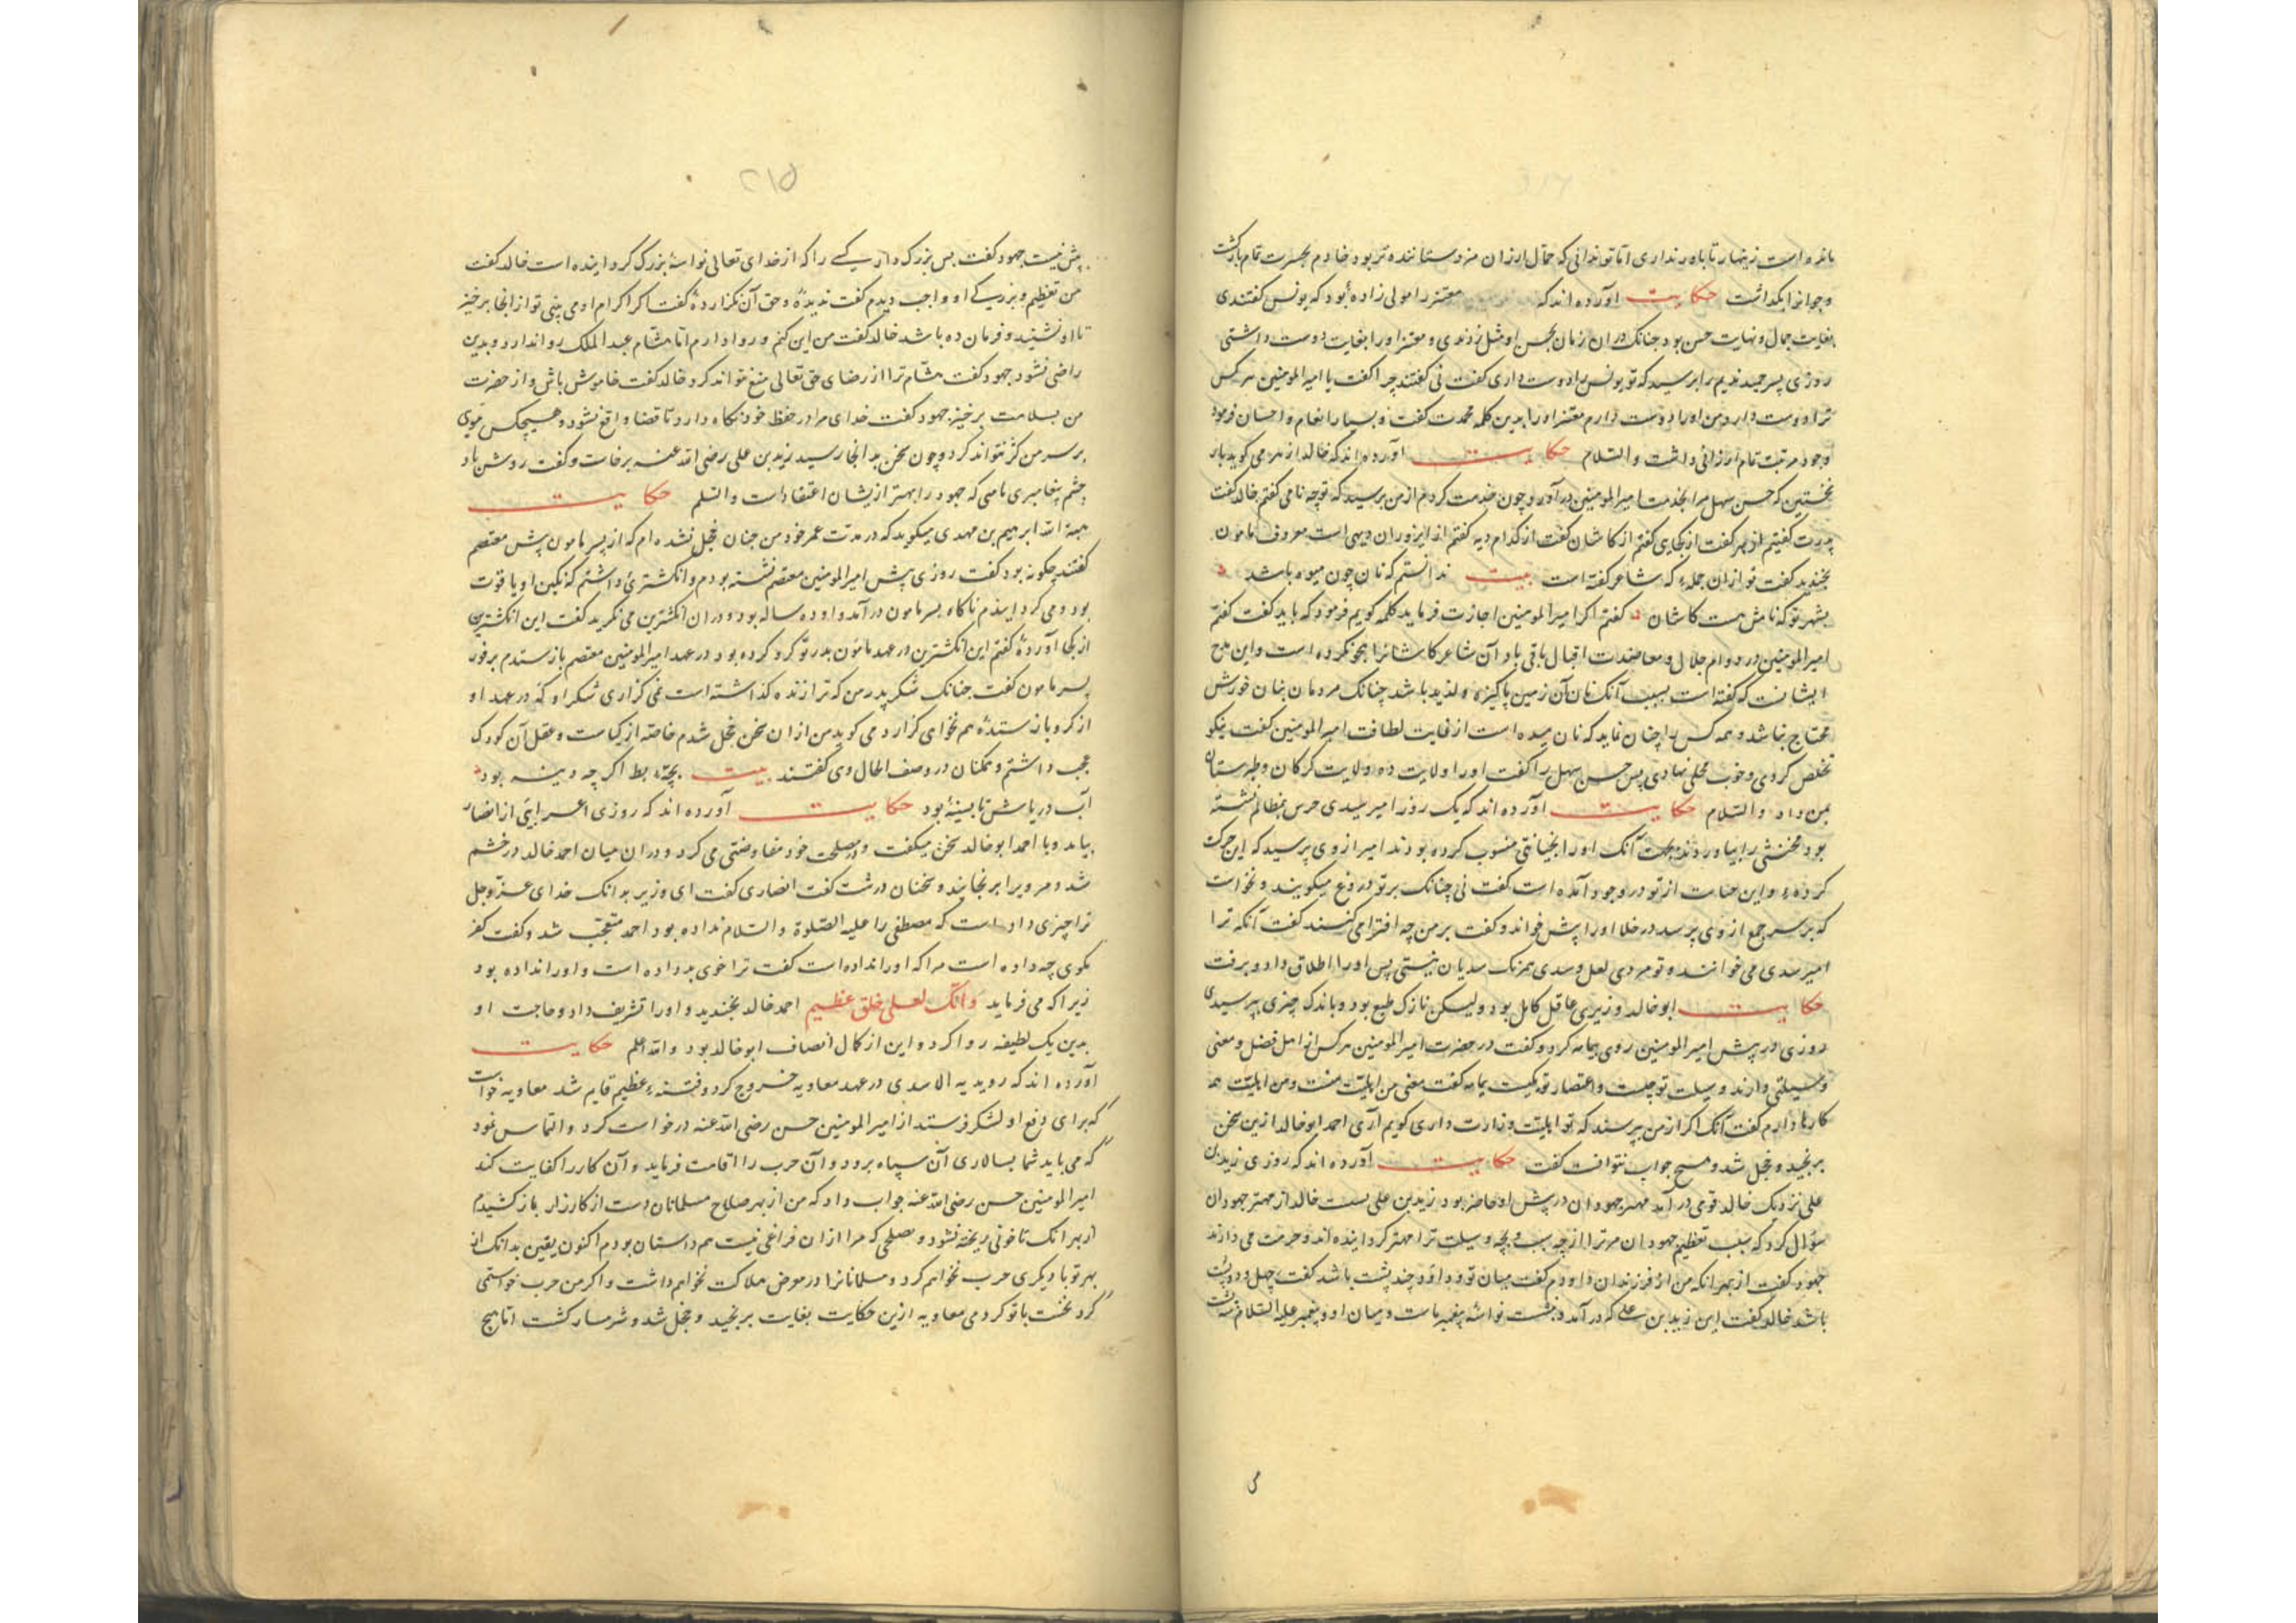 باز و است زینهار تا باور نداری اما تو ندانی که حمال ارزان مزد ستاننده تر بود خادم بحسرت تمام بازگشت
و جوانرا بگذاشت حکایت آورده اند که معتز را مولی زاده بود که یونس گفتندی
بغایت جمال و نهایت حسن بود چنانک دران زمان بحسن او مثل زدندی و معتز او را بغایت دوست داشتی
روزی پسر حمید ندیم را پرسید که تو یونس را دوست داری گفت نی گفتند چرا گفت یا امیر المومنین هر کس
ترا دوست دارد من او را دوست دارم معتز او را بدین کلمه محمدت گفت و بسیار انعام و احسان فرمود
وجود مرتبت تمام ارزانی داشت والسلام حکایت آورده اند که خالد ازهر می گوید بار
نخستین که حسن سهل مرا بخدمت امیر المومنین در آورد چون خدمت کردم از من پرسید که تو چه نامی گفتم خالد گفت
پدرت گفتم ازهر گفت از کجایی گفتم از کاشان گفت از کدام دیه گفتم از دیهی است معروف مامون
بخندید گفت تو ازان جمله که شاعر گفته است بیت ندانستم که نان چون میوه باشد
بشهر تو که نامش هست کاشان گفتم اکر امیر المومنین اجازت فرماید کلمه گویم فرمود که بباید گفت گفتم
امیر المومنین در دوام جلال و معاضدت اقبال باقی باد آن شاعر کاشانرا هجو نکرده است و این مدح
ایشانست که گفته است بسبب آنک نان آن زمین پاکیزه و لذیذ باشد چنانک مردمان بنان خورش
محتاج نباشد و همه کس را چنان نماید که نان میوه است از غایت لطافت امیر المومنین گفت نیکو
تخلص کردی و خوب محلی نهادی پس حسن سهل را گفت او را ولایت ده ولایت گرگان و طبرستان
بمن داد والسلام حکایت آورده اند که یک روز امیر سدی حرس بمظالم نشسته
بود مخنثی را بیاوردند بجهت آنک او را بخیانتی منسوب کرده بودند امیر از وی پرسید که این حرکت
کرده و این جنایت از تو در وجود آمده است گفت نی چنانک بر تو دروغ میگویند و نخواست
که بر سر جمع از وی پرسد در خلا او را پیش خواند و گفت بر من چه افترا می کنند گفت آنکه ترا
امیر سدی می خوانند و تو مردی لعل و سدی همرنک سدیان نیستی پس او را اطلاق داد و برفت
حکایت ابو خالد وزیری عاقل کامل بود ولیکن نازک طبع بود و باندک چیزی برنجیدی
روزی در پیش امیر المومنین روی بیامه کرد و گفت در حضرت امیر المومنین هر کس از اهل فضل و معنی
وسیلتی دارند وسیلت تو چیست و اعتضاد تو بکیست یمامه گفت معنی من اهلیت منست و من اهلیت همه
کارها دارم گفت آنک اگر از من پرسند که تو اهلیت وزارت داری گویم آری احمد ابو خالد ازین سخن
برنجید و خجل شد و هیچ جواب نتوانست گفت حکایت آورده اند که روزی زید بن
علی نزدیک خالد قومی در آمد مهتر جهودان در پیش او حاضر بود زید بن علی بنشست خالد از مهتر جهودان
سؤال کرد که سبب تعظیم جهودان مر ترا از چه سبب و بچه وسیلت ترا مهتر کردانیده اند و حرمت می دارند
جهود گفت از بهر انکه من از فرزندان داودم گفت میان تو و داود چند پشت باشد گفت چهل و دو پشت
باشد خالد گفت این زید بن علی که در آمد و بنشست نواسه پیغمبر ماست و میان او و پیغمبر علیه السلام سه پشت
پیش نیست جهود گفت بس بزرگ وار کسی را که از خدای تعالی نواسه بزرگ گردانیده است خالد گفت
من تعظیم و بزرگی او واجب دیدم گفت ندیدۀ و حق آن نگزاردۀ گفت اکر اکرام او می بینی تو از انجا برخیز
تا او نشیند و فرمان ده باشد خالد گفت من این کنم و روا دارم اما هشام عبد الملک روا ندارد و بدین
راضی نشود جهود گفت هشام ترا از رضای حق تعالی منع تواند کرد خالد گفت خاموش باش و از حضرت
من بسلامت برخیز جهود گفت خدای مرا در حفظ خود نگاه دارد تا قضا واقع نشود و هیچکس موی
بر سر من کژ نتواند کرد و چون سخن بدانجا رسید زید بن علی رضی الله عنه برخاست و گفت روشن باد
چشم پیغامبری نامی که جهود را بهتر از ایشان اعتقاد است والسلم حکایت
هبة الله ابرهیم بن مهدی میگوید که در مدت عمر خود من چنان خجل نشده ام که از پسر مامون پیش معتصم
گفتند چگونه بود گفت روزی پیش امیر المومنین معتصم نشسته بودم و انگشتری داشتم که نگین او یاقوت
بود و می گردانیدم ناگاه پسر مامون در آمد و او ده ساله بود و دران انگشترین می نگرید گفت این انگشترین
از کجا آوردۀ گفتم این انگشترین در عهد مامون پدر تو گرو کرده بود در عهد امیر المومنین معتصم باز ستدم بر فور
پسر مامون گفت چنانک شکر پدر من که ترا زنده گذاشته است نمی گزاری شکر او که در عهد او
از گرو باز ستدۀ هم نخواهی گزارد می گوید من ازان سخن خجل شدم خاصه از کیاست و عقل آن کودک
عجب داشتم و همگنان در وصف الحال وی گفتند بیت بچۀ بط اگر چه دینه بود
آب دریاش تا بسینۀ بود حکایت آورده اند که روزی اعرابئی از انصار
بیامد و با احمد ابو خالد سخن میگفت و در مصلحت خود مفاوضتی می کرد و دران میان احمد خالد در خشم
شد و مر ویرا برنجانید و سخنان درشت گفت انصاری گفت ای وزیر بدانک خدای عز و جل
ترا چیزی داد است که مصطفی را علیه الصلوة والسلام نداده بود احمد متعجب شد و گفت کفر
مگوی چه داده است مرا که او را نداده است گفت ترا خوی بد داده است و او را نداده بود
زیرا که می فرماید وانک لعلی خلق عظیم احمد خالد بخندید و او را تشریف داد و حاجت او
بدین یک لطیفه روا کرد و این از کمال انصاف ابو خالد بود والله اعلم حکایت
آورده اند که رویدیه الاسدی در عهد معاویه خروج کرد و فتنۀ عظیم قایم شد معاویه خواست
که برای دفع او لشکر فرستد از امیر المومنین حسن رضی الله عنه درخواست کرد و التماس نمود
که می باید شما بسالاری آن سپاه برود و آن حرب را اقامت فرماید و آن کار را کفایت کند
امیر المومنین حسن رضی الله عنه جواب داد که من از بهر صلاح مسلمانان دست از کارزار باز کشیدم
از بهر انک تا خونی ریخته نشود و صلحی که مرا ازان فراغی نیست هم داستان بودم اکنون یقین بدانک از
بهر تو با دیگری حرب نخواهم کرد و مسلمانانرا در معرض هلاکت نخواهم داشت و اکر من حرب خواستمی
کرد نخست با تو کردمی معاویه ازین حکایت بغایت برنجید و خجل شد و شرمسار گشت اما هیچ